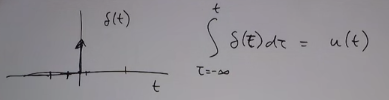 δ(t)
t
∫_{τ=-∞}^{t} δ(τ)dτ = u(t)